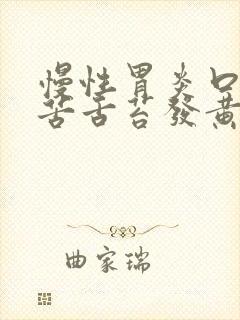 慢性胃炎口
苦舌苔發黄
曲家瑞